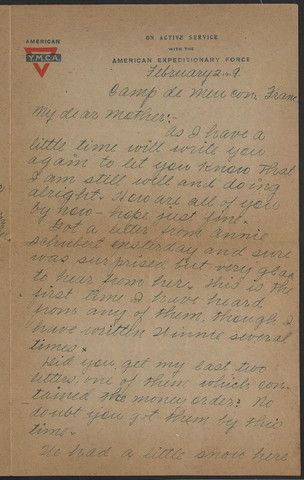 AMERICAN
Y.M.C.A.
ON ACTIVE SERVICE
WITH THE
AMERICAN EXPEDITIONARY FORCE
February 2-9
Camp de Meucon, Franc
My dear Mother:-
As I have a
little time will write you
again to let you know that
I am still well and doing
alright. How are all of you
by now - hope just fine.
Got a letter from Annie
Schubert yesterday and sure
was surprised but very glad
to hear from her. This is the
first time I have heard
from any of them though I
have written Winnie several
times.
Did you get my last two
letters one of them which con-
tained the money order? No
doubt you got them by this
time.
We had a little snow here